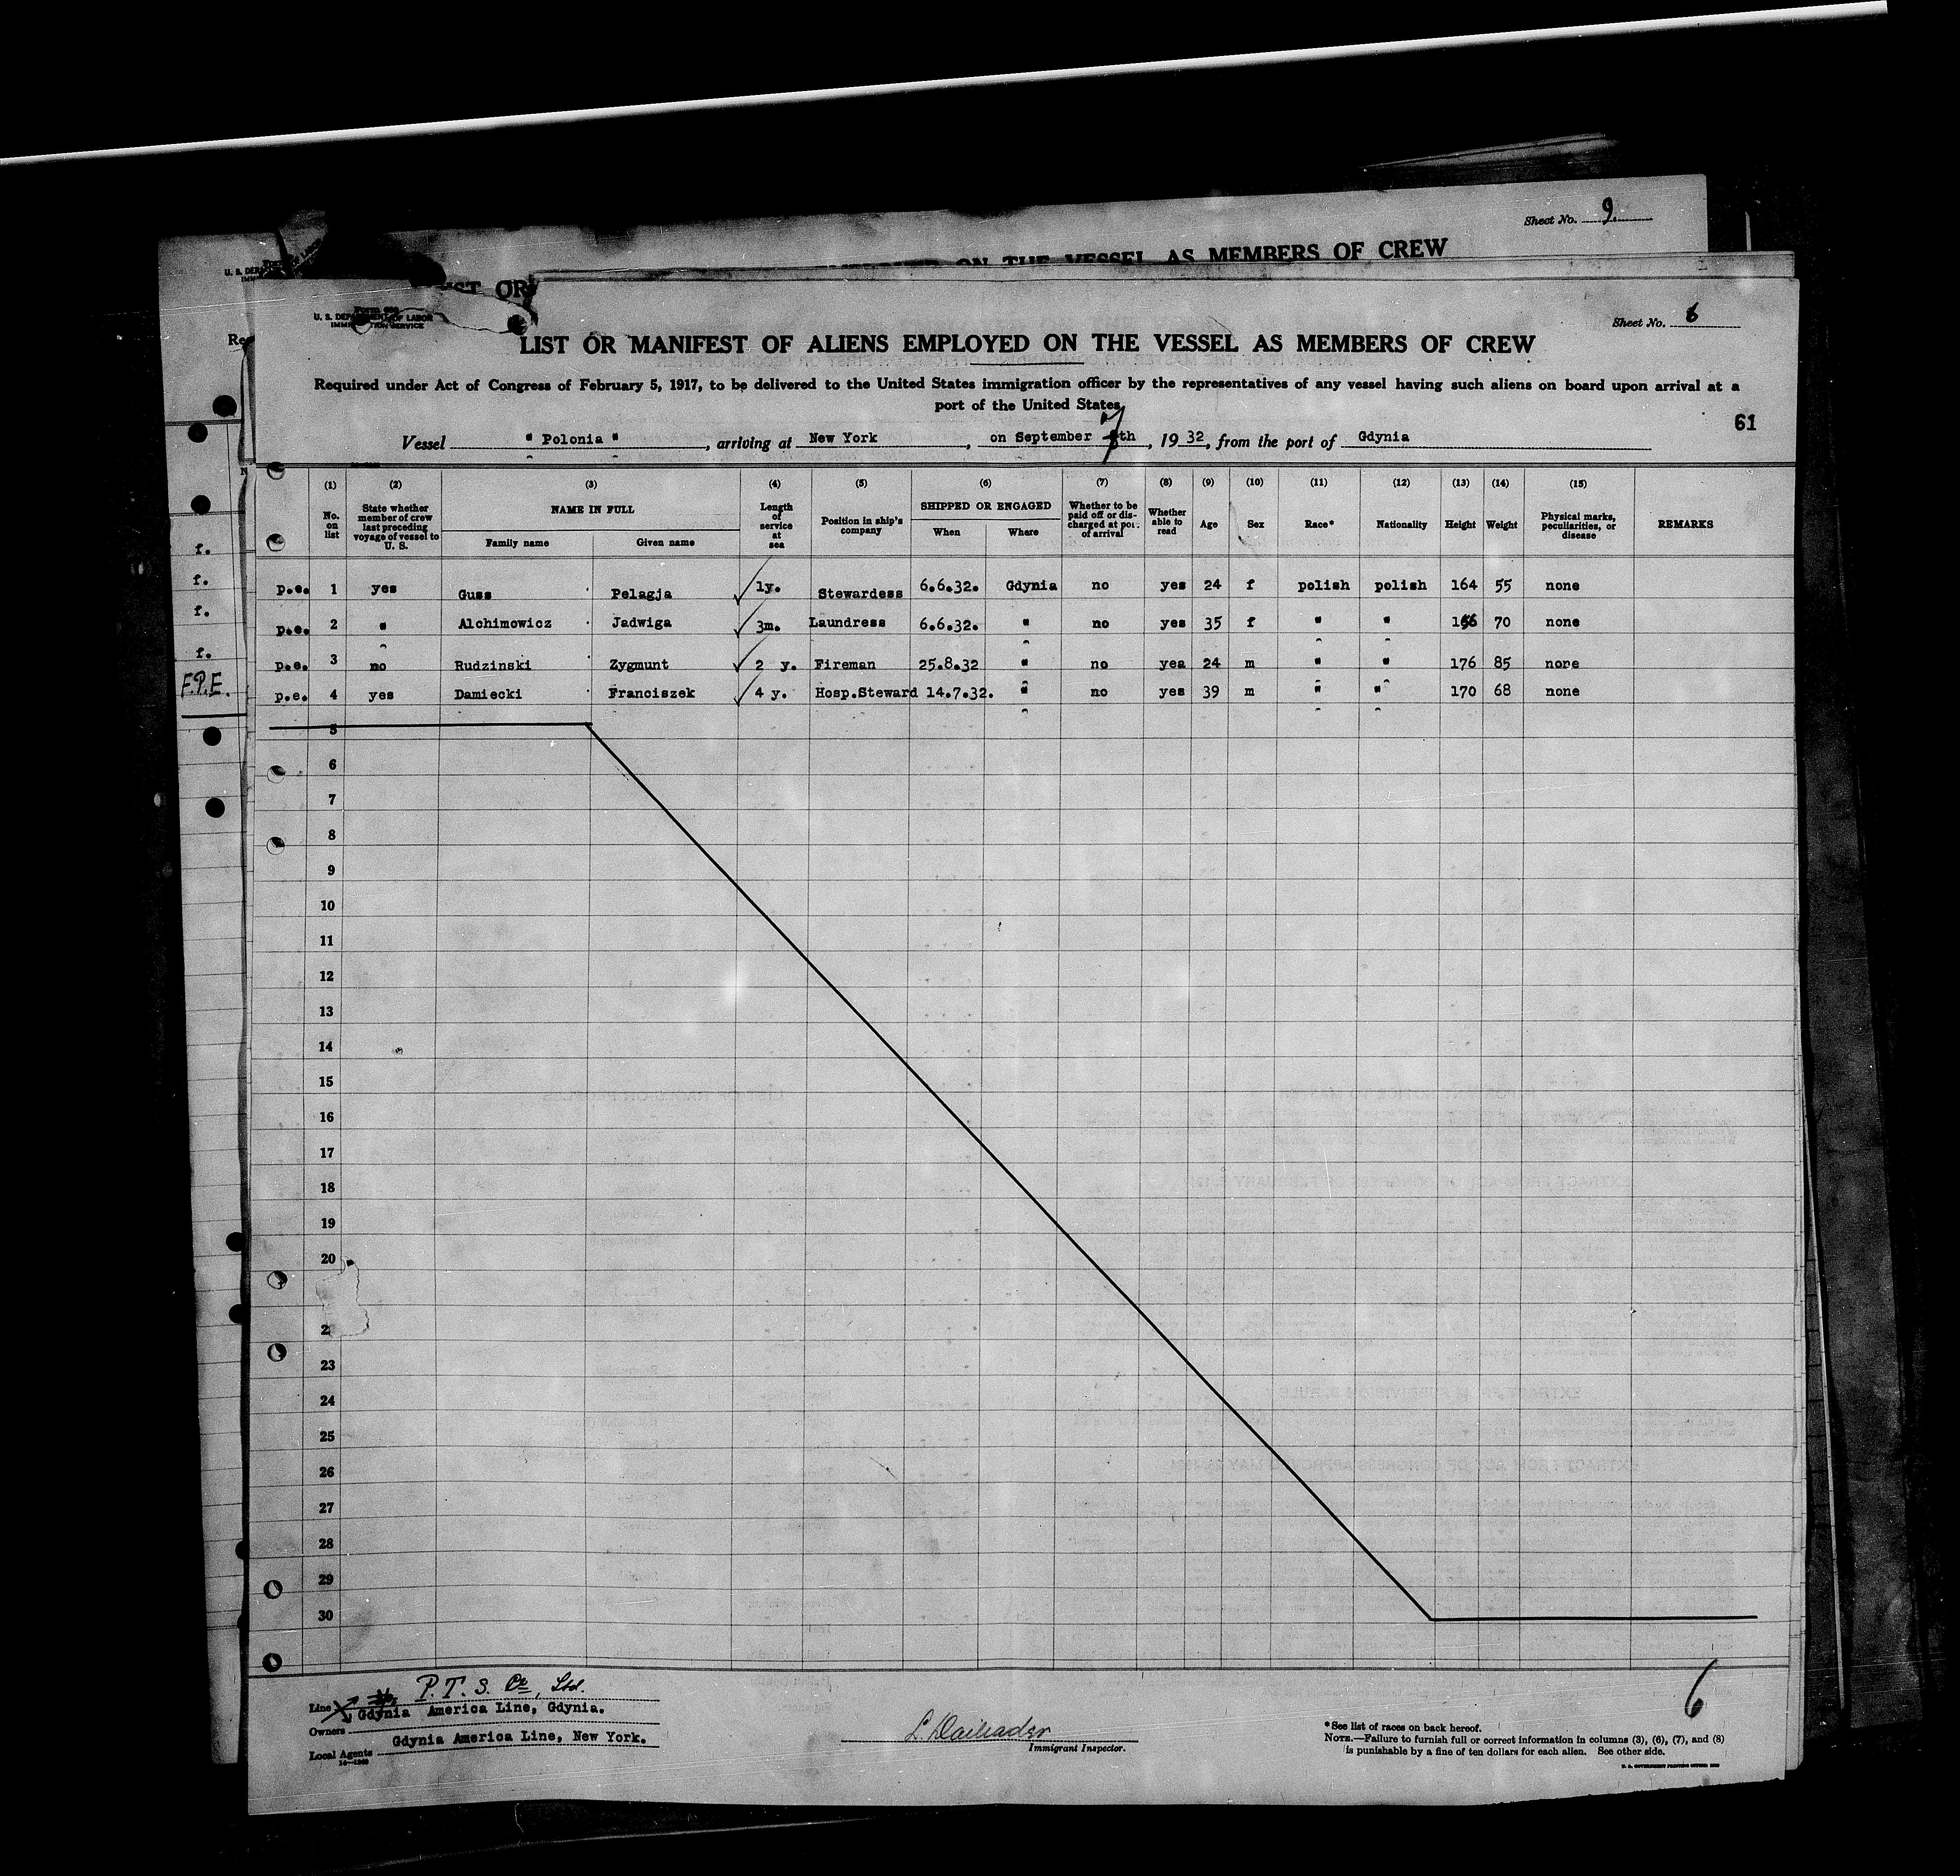 Sheet No. 9.
ON THE VESSEL AS MEMBERS OF CREW
IST OR
U. S. DEPARTMENT OF LABOR
IMMIGRATION SERVICE
Sheet No. 6
LIST OR MANIFEST OF ALIENS EMPLOYED ON THE VESSEL AS MEMBERS OF CREW
Required under Act of Congress of February 5, 1917, to be delivered to the United States immigration officer by the representatives of any vessel having such aliens on board upon arrival at a
port of the United States
61
Vessel " Polonia ", arriving at New York, on September 7th, 1932, from the port of Gdynia
(1) (2) (3) (4) (5) (6) (7) (8) (9) (10) (11) (12) (13) (14) (15)
No. on list State whether member of crew last preceding voyage of vessel to U. S. NAME IN FULL Family name Given name Length of service at sea Position in ship's company SHIPPED OR ENGAGED When Where Whether to be paid off or discharged at port of arrival Whether able to read Age Sex Race* Nationality Height Weight Physical marks, peculiarities, or disease REMARKS
p.e. 1 yes Guss Pelagja 1y. Stewardess 6.6.32. Gdynia no yes 24 f polish polish 164 55 none
p.e. 2 " Alchimowicz Jadwiga 3m. Laundress 6.6.32. " no yes 35 f " " 156 70 none
p.e. 3 no Rudzinski Zygmunt 2 y. Fireman 25.8.32 " no yea 24 m " " 176 85 none
p.e. 4 yes Damiecki Franciszek 4 y. Hosp.Steward 14.7.32. " no yes 39 m " " 170 68 none
f.
f.
f.
f.
F.P.E.
5
6
7
8
9
10
11
12
13
14
15
16
17
18
19
20
2
23
24
25
26
27
28
29
30
Line P.T.S. Co, Ltd.
Owners Gdynia America Line, Gdynia.
Local Agents Gdynia America Line, New York.
Immigrant Inspector.
6
*See list of races on back hereof.
NOTE.—Failure to furnish full or correct information in columns (3), (6), (7), and (8)
is punishable by a fine of ten dollars for each alien. See other side.